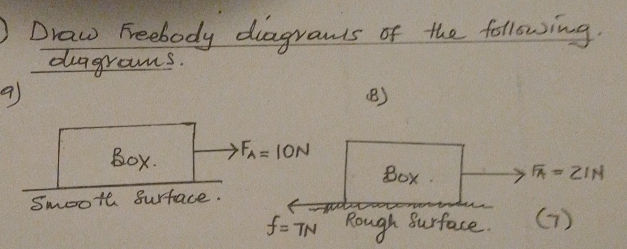 ) Draw Freebody diagrams of the following.
diagrams.
a)
B)
Box.
FA = 10N
Smooth Surface.
Box.
FA = 21N
f = 7N
Rough Surface.
(7)